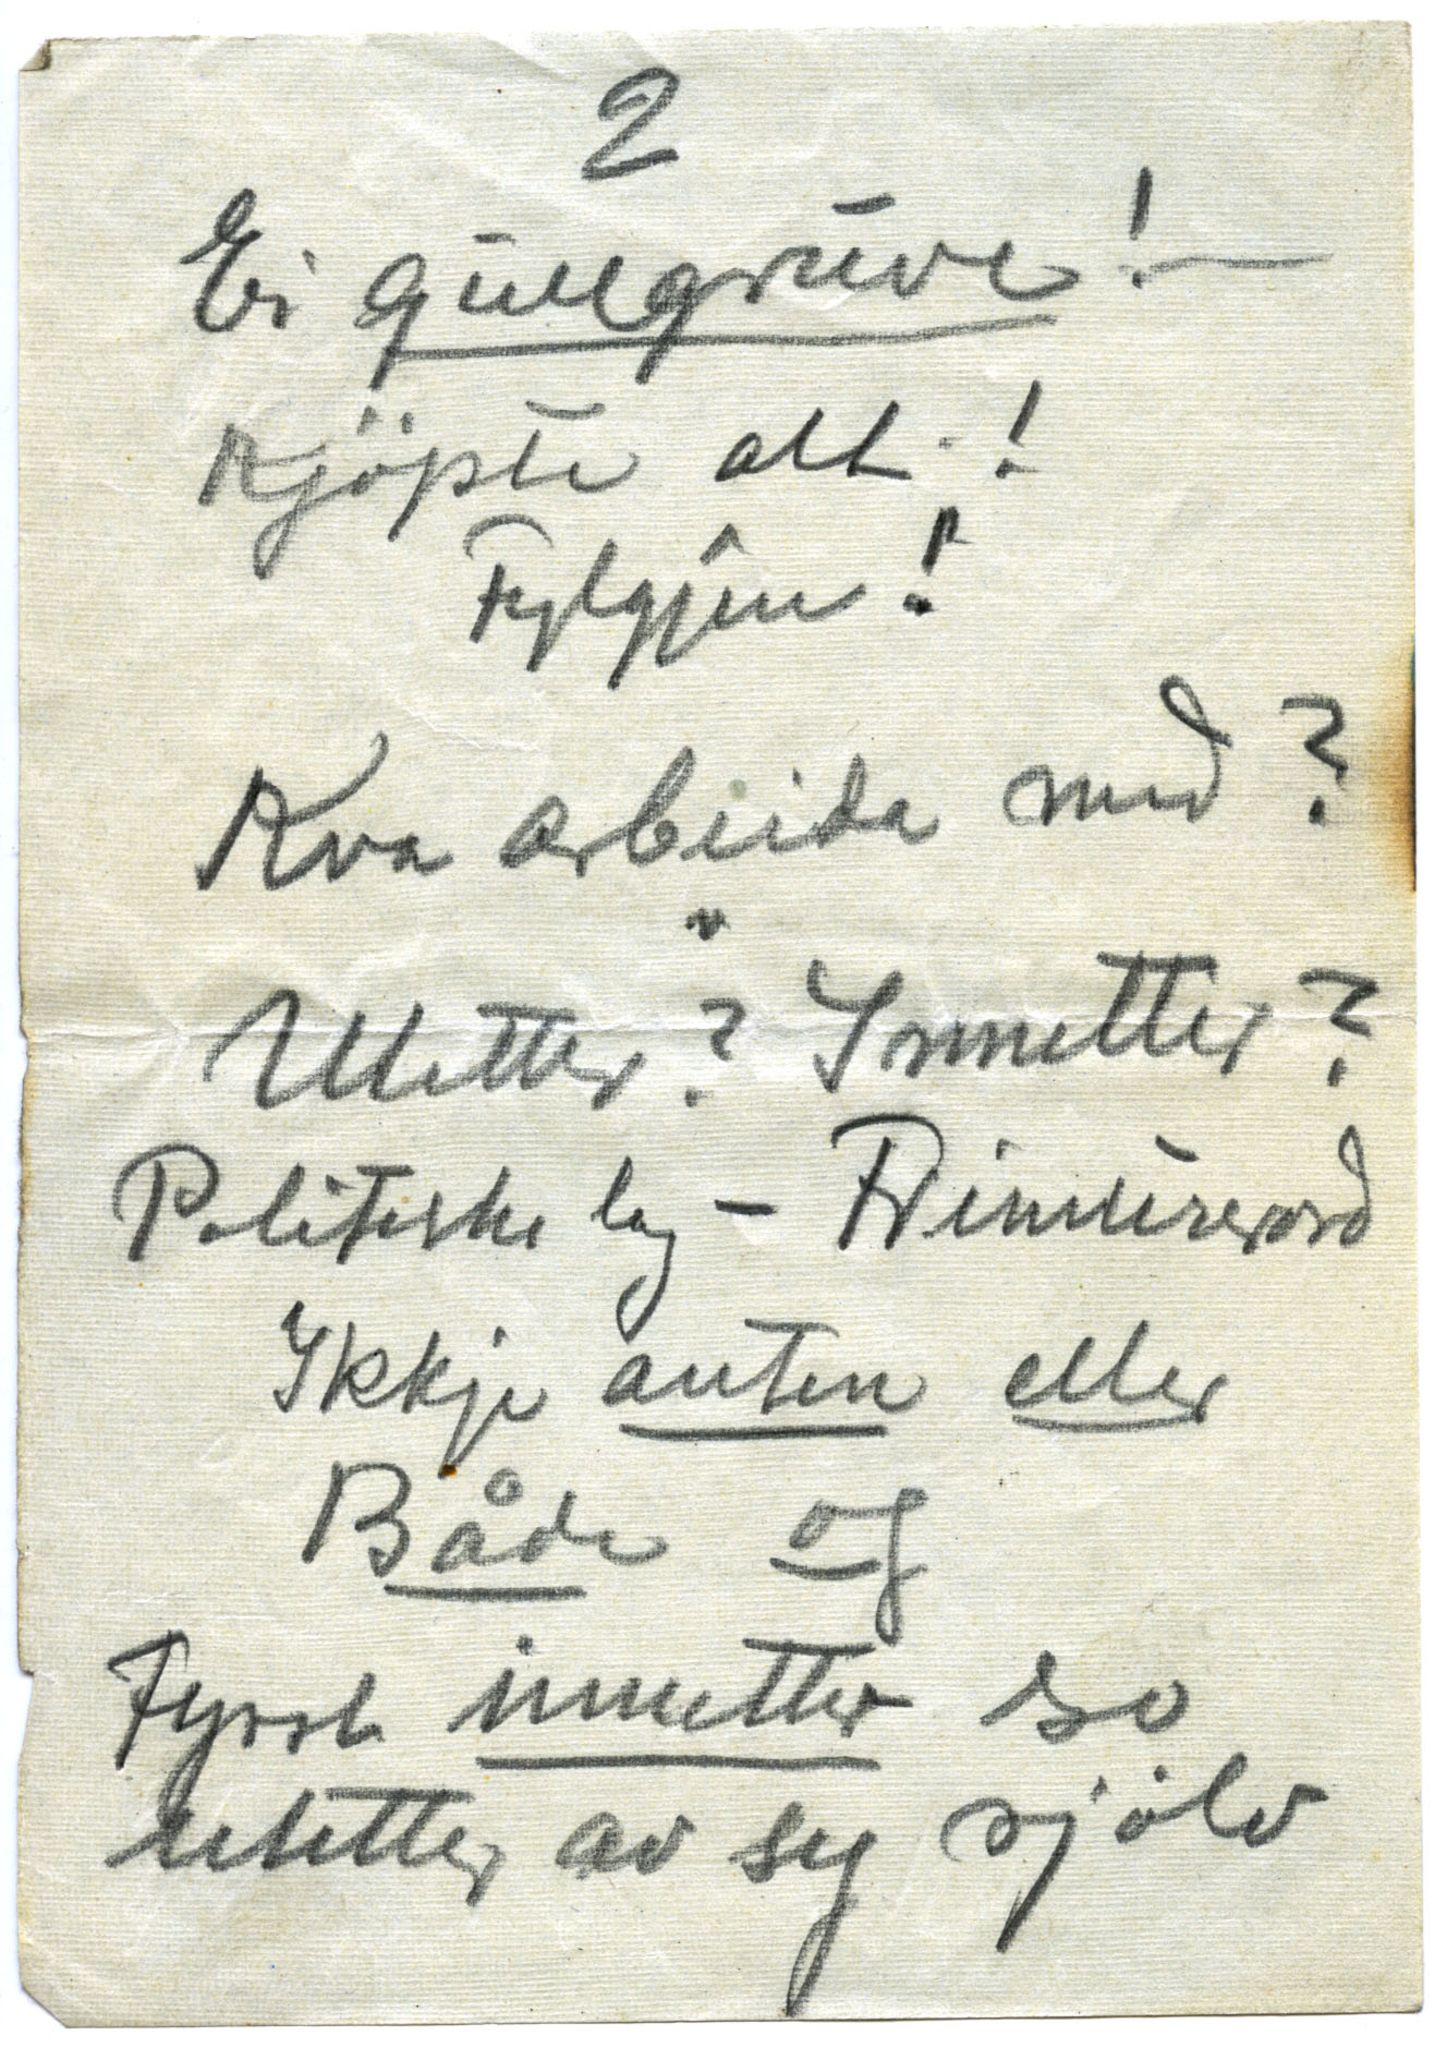 2
Ei gullgruve! —
Kjöpte alt.!
Fylgjen!
Kva arbeida med?
Utetter? Innetter?
Politiske lag – Frimurerord
Ikkje anten eller
Både og
Fyrst innetter so
utetter av seg sjölv